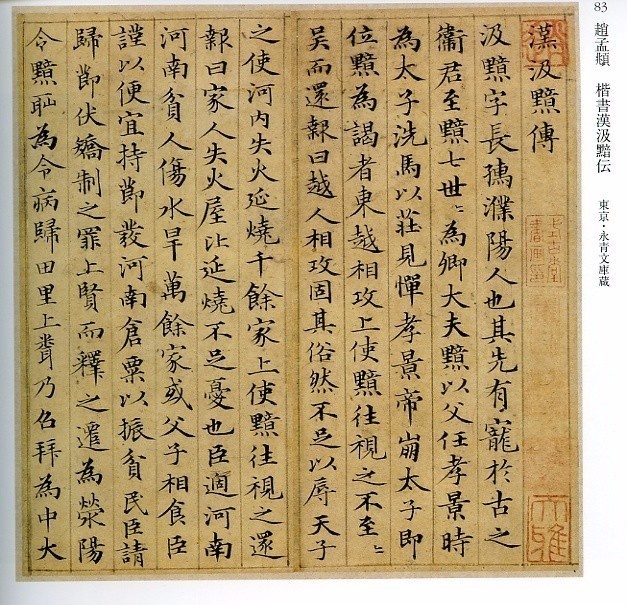 83
趙孟頫　楷書漢汲黯伝　東京・永青文庫蔵
漢汲黯傳
大雅
汲黯字長孺濮陽人也其先有寵於古之
衛君至黯七世〻為卿大夫黯以父任孝景時
為太子洗馬以莊見憚孝景帝崩太子即
位黯為謁者東越相攻上使黯往視之不至〻
吴而還報曰越人相攻固其俗然不足以辱天子
之使河内失火延燒千餘家上使黯往視之還
報曰家人失火屋比延燒不足憂也臣適河南
河南貧人傷水旱萬餘家或父子相食臣
謹以便宜持節發河南倉粟以振貧民臣請
歸節伏矯制之罪上賢而釋之遷為滎陽
令黯恥為令病歸田里上聞乃召拜為中大